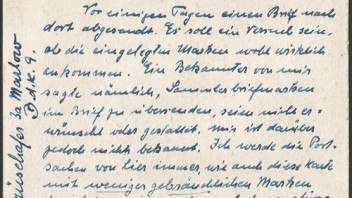 Vor einigen Tagen einen Brief nach
dort abgesandt. Es soll ein Versuch sein,
ob die eingelegten Marken wohl wirklich
ankommen. Ein Bekannter von mir
sagte nämlich, Sammlerbriefmarken
im Brief zu übersenden, seien nicht er-
wünscht oder gestattet, mir ist darüber
jedoch nichts bekannt. Ich werde die Post-
sachen von hier immer, wie auch diese Karte
mit weniger gebräuchlichen Marken